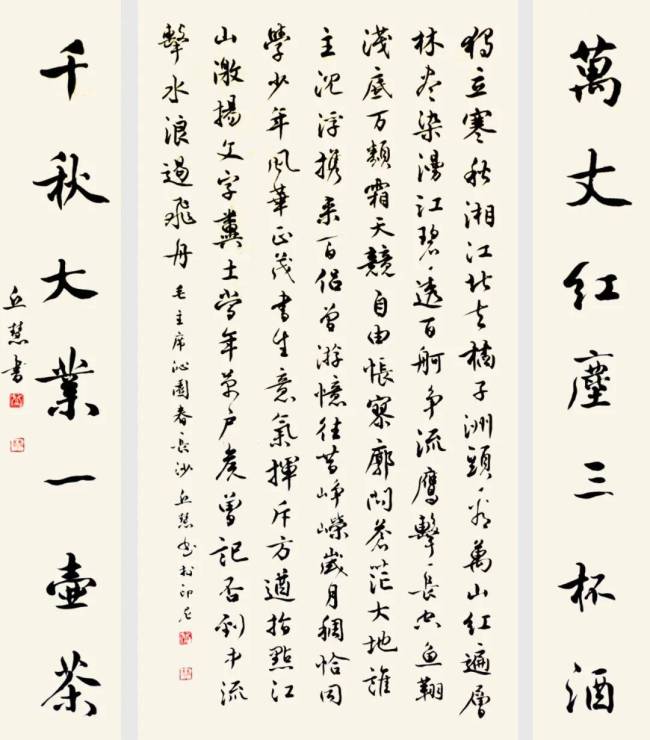 萬丈紅塵三杯酒
獨立寒秋湘江北去橘子洲頭看萬山紅遍層
林盡染漫江碧透百舸争流鷹擊長空魚翔
淺底万類霜天競自由悵寥廓問蒼茫大地誰
主沈浮携来百侣曾游憶往昔崢嶸歲月稠恰同
學少年風華正茂書生意氣揮斥方遒指點江
山激揚文字糞土當年万户侯曾記否到中流
擊水浪遏飛舟 毛主席沁園春長沙 丘慧书於印尼
千秋大業一壺茶
丘慧书